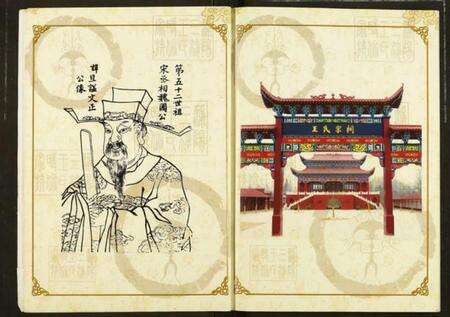 第五十二世祖
宋丞相魏國公
諱旦謚文正
公像
王氏宗祠